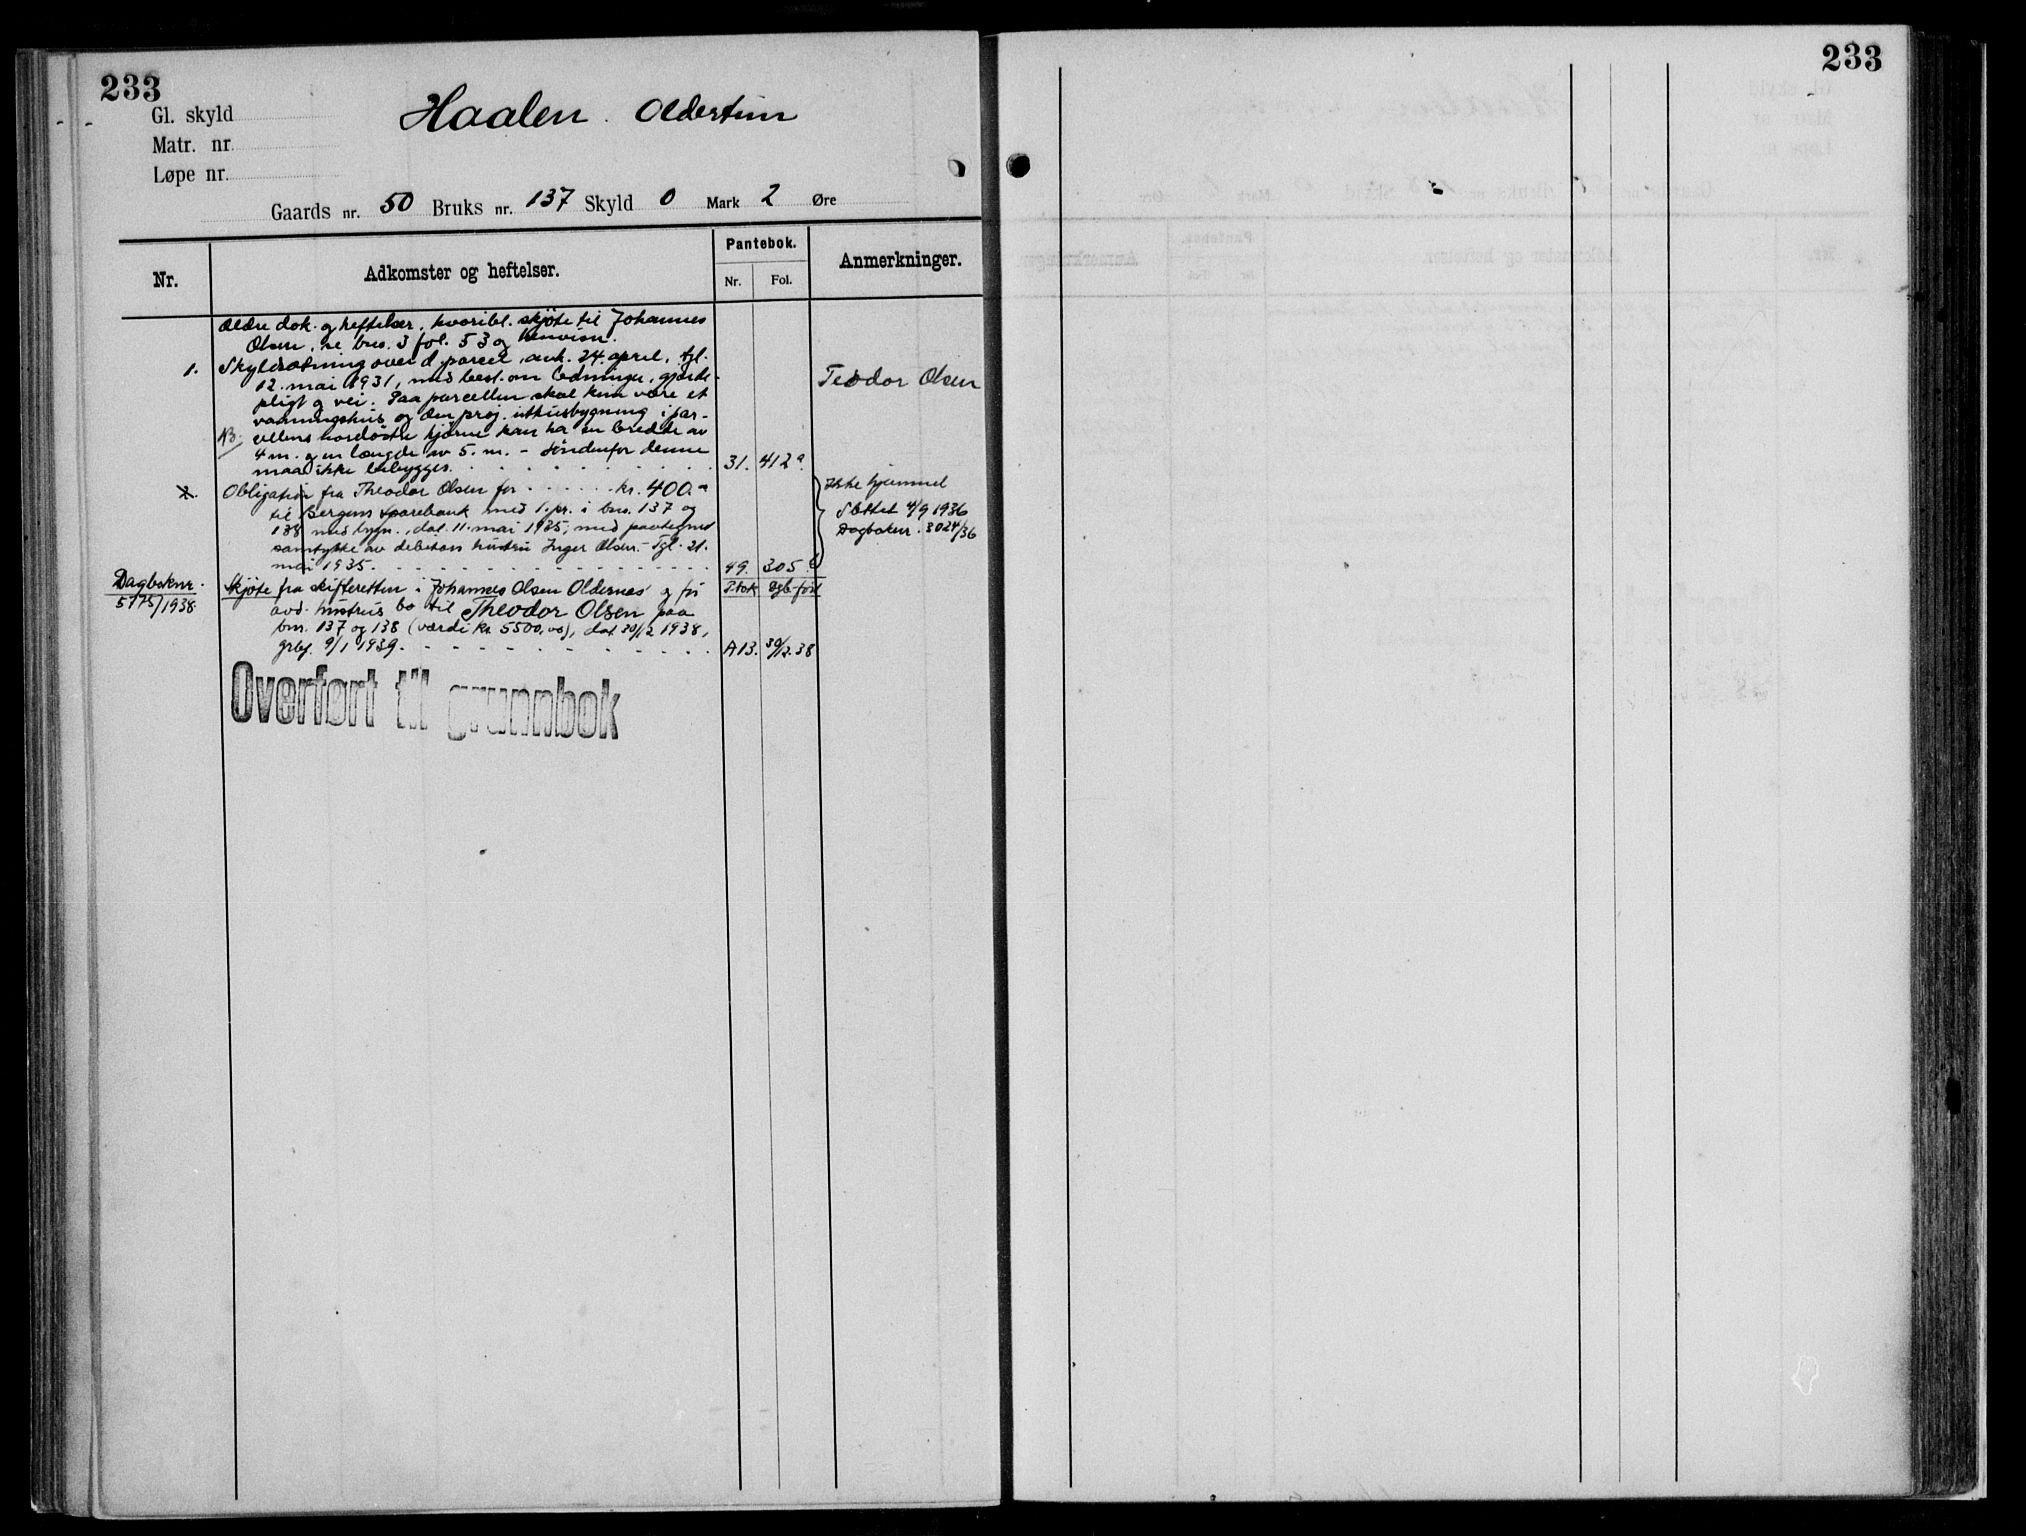 233
Gl. skyld
Haalen. Oldertun
Matr. nr.
Løpe nr.
Gaards nr. 50 Bruks nr. 137 Skyld 0 Mark 2 Øre
Nr.
Adkomster og heftelser.
Pantebok.
Nr. Fol.
Anmerkninger.
Ældre dok. og heftelser, hvoribl. skjøte til Johannes
Olsen, se bno. 3 fol. 53 og henvisn.
1. Skyldsætning over d. parcel, avh. 24. april, tgl.
12. mai 1931, med best. om ledninger, gjærde-
pligt og vei. Paa parcellen skal kun være et
vaaningshus og den proj. uthusbygning i par-
NB. cellens nordøstre hjørne kan ha en bredde av
4 m. og en længde av 5. m. - Søndenfor denne
maa ikke bebygges. 31. 412a
Teodor Olsen
2. Obligation fra Theodor Olsen for kr. 400.-
til Bergens sparebank med 1. pr. i bno. 137 og
138 med bygn., dat. 11. mai 1935, med paategnet
samtykke av debitors hustru Inger Olsen. - Tgl. 21.
mai 1935. 49. 305b
Ikke hjemmel
Slettet 4/9 1936
Dagboknr. 3024/36
Dagboknr.
5175/1938.
P.bok Dgb.ført
Skjøte fra skifteretten i Johannes Olsen Oldernes og for
avd. hustrus bo til Theodor Olsen paa
bnr. 137 og 138 (værdi kr. 5500,00), dat. 30/12 1938,
grbf. 9/1 1939. A13. 30/12.38
Overført til grunnbok
233